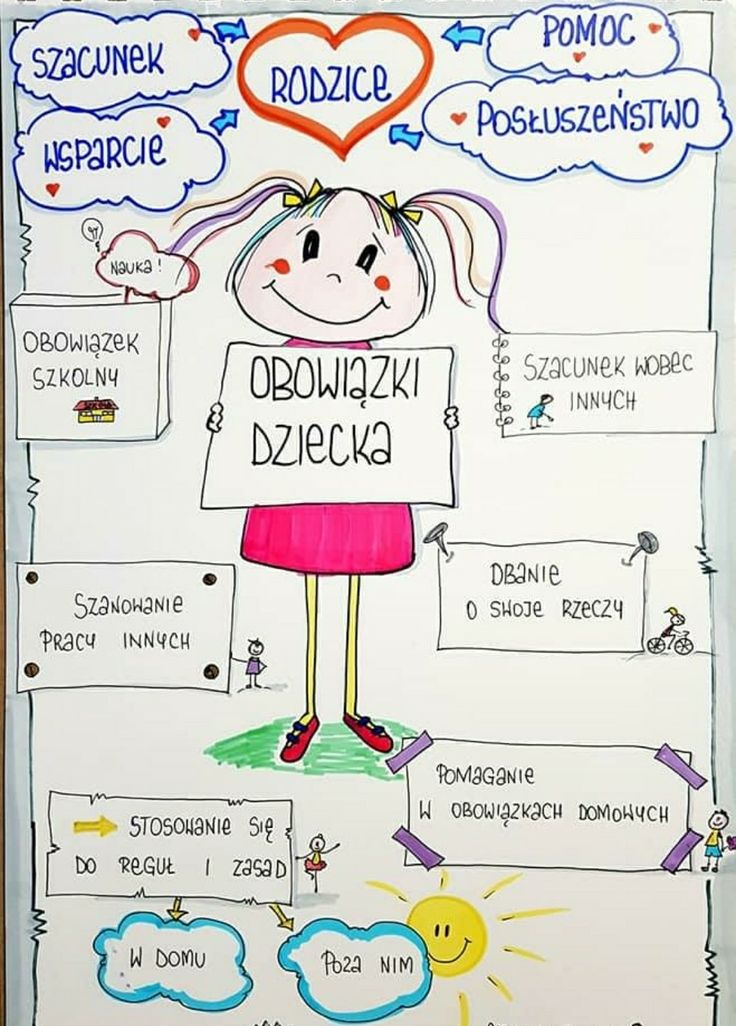 SZACUNEK
RODZICE
POMOC
WSPARCIE
POSŁUSZEŃSTWO
NAUKA!
OBOWIĄZEK
SZKOLNY
SZKOŁA
OBOWIĄZKI
DZIECKA
SZACUNEK WOBEC
INNYCH
SZANOWANIE
PRACY INNYCH
DBANIE
O SWOJE RZECZY
POMAGANIE
W OBOWIĄZKACH DOMOWYCH
STOSOWANIE SIĘ
DO REGUŁ I ZASAD
W DOMU
POZA NIM